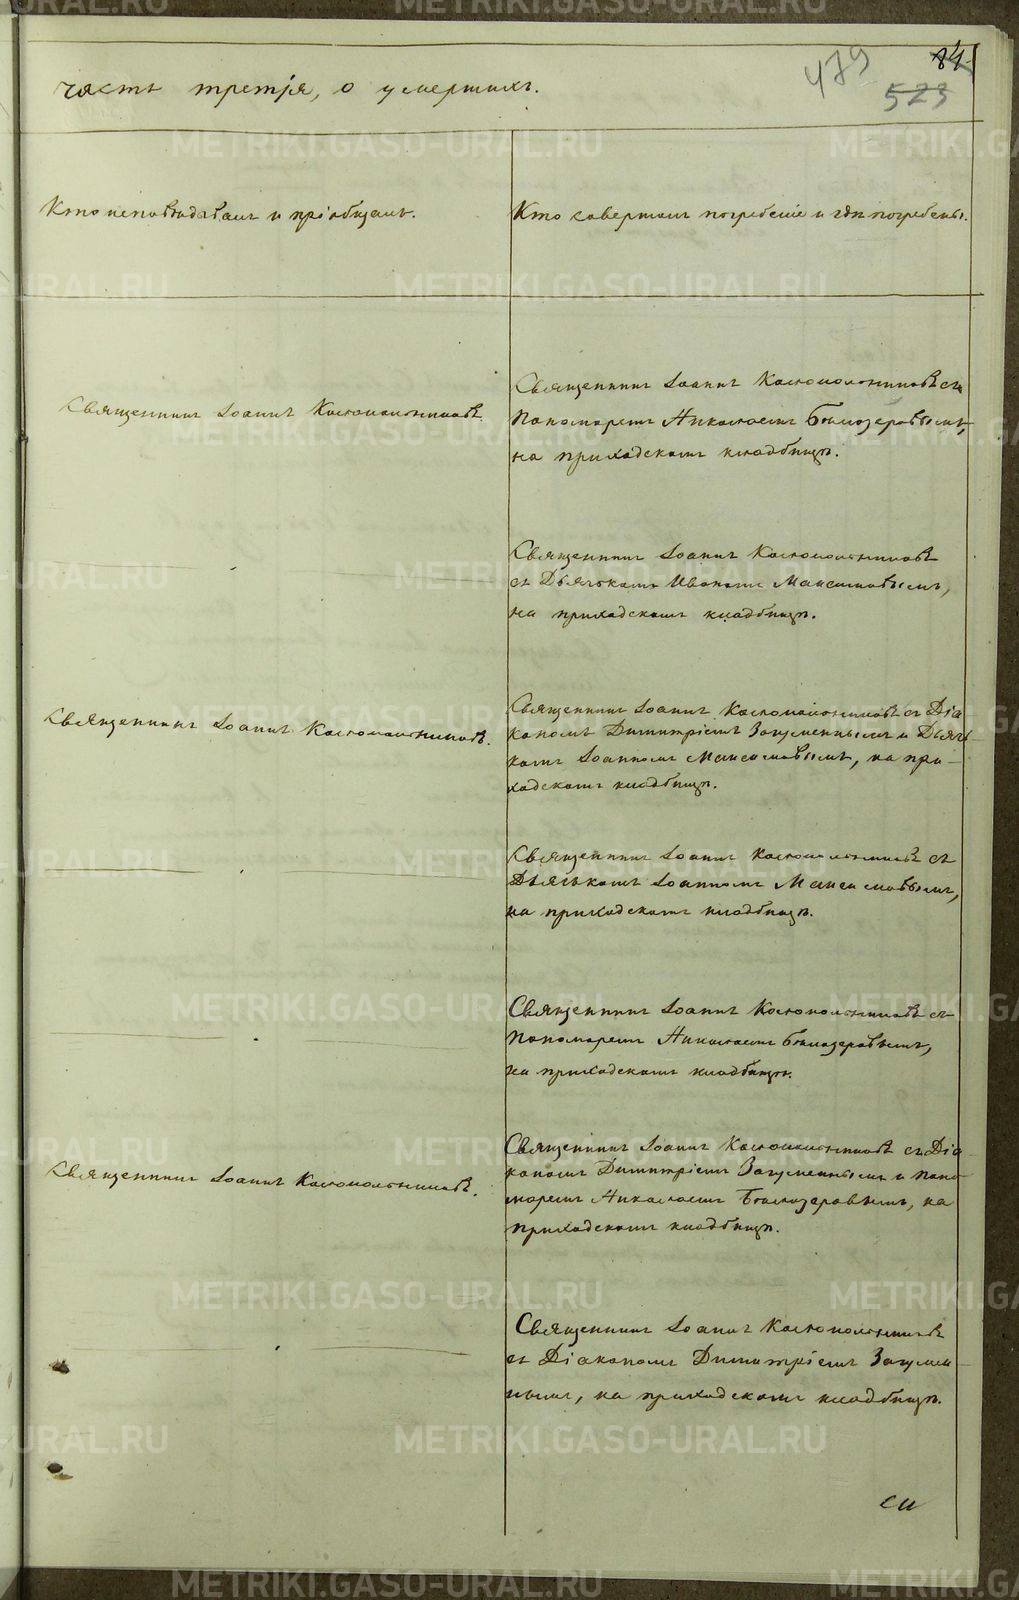 479
84
523
часть третія, о умершихъ.
Кто исповѣдывалъ и пріобщалъ.
Кто совершалъ погребеніе и гдѣ погребены.
Священникъ Іоаннъ
Священникъ Іоаннъ съ
Пономаремъ Николаемъ Бѣлозеровымъ,
на приходскомъ кладбищѣ.
Священникъ Іоаннъ
съ Дьячкомъ Иваномъ Максимовымъ,
на приходскомъ кладбищѣ.
Священникъ Іоаннъ
Священникъ Іоаннъ съ Діа-
кономъ Димитріемъ и Дьяч-
комъ Іоанномъ Максимовымъ, на при-
ходскомъ кладбищѣ.
Священникъ Іоаннъ съ
Дьячкомъ Іоанномъ Максимовымъ,
на приходскомъ кладбищѣ.
Священникъ Іоаннъ съ
Пономаремъ Николаемъ Бѣлозеровымъ,
на приходскомъ кладбищѣ.
Священникъ Іоаннъ
Священникъ Іоаннъ съ Діа-
кономъ Димитріемъ и Поно-
маремъ Николаемъ Бѣлозеровымъ, на
приходскомъ кладбищѣ.
Священникъ Іоаннъ
съ Діакономъ Димитріемъ
на приходскомъ кладбищѣ.
METRIKI.GASO-URAL.RU